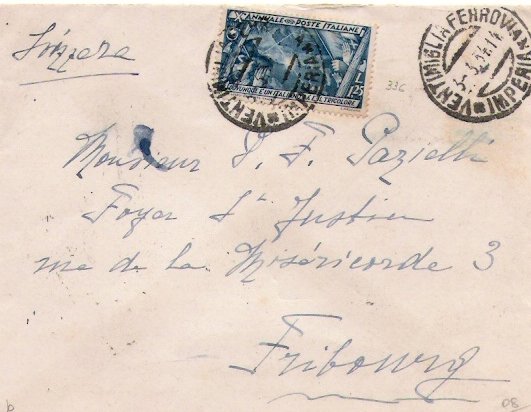 Svizzera
X ANNALE POSTE ITALIANE
L. 1,25
OVUNQUE È UN ITALIANO LÀ È IL TRICOLORE
VENTIMIGLIA FERROVIA
(IMPERIA)
336
Monsieur
Foyer St Justin
rue de la Miséricorde 3
Fribourg
b
08